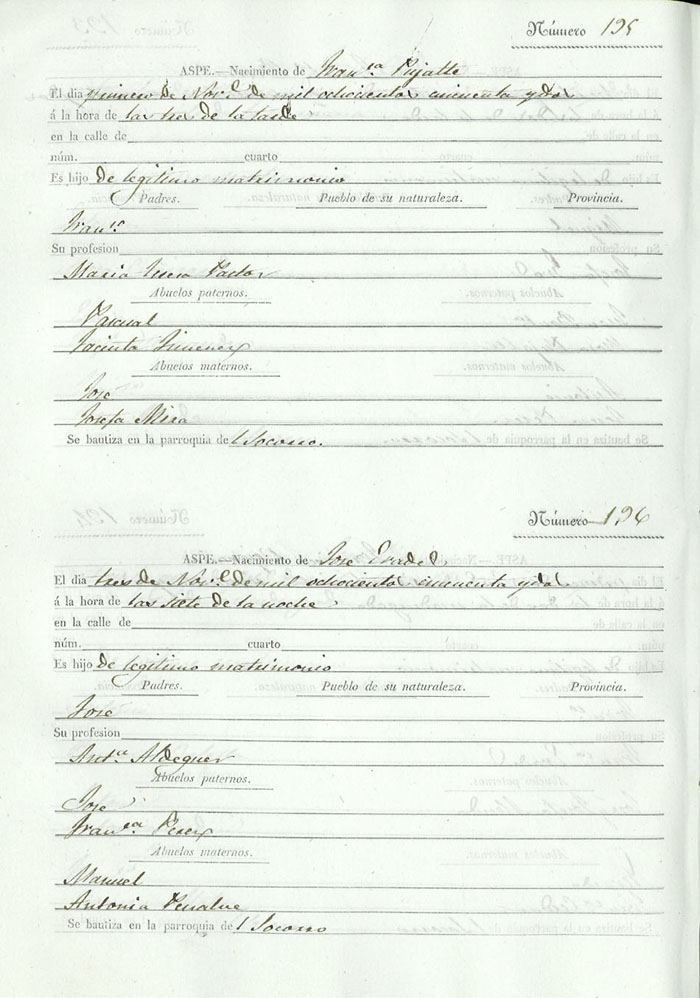 Número 195
ASPE.—Nacimiento de Fran.ca Pujalte
El dia primero de Nov.e de mil ochocientos cincuenta y dos
á la hora de las tres de la tarde
en la calle de
núm. cuarto
Es hijo de legitimo matrimonio
Padres. Pueblo de su naturaleza. Provincia.
Fran.co
Su profesion
Maria Pastor
Abuelos paternos.
Pascual
Jacinta Gimenez
Abuelos maternos.
Jose
Josefa Mira
Se bautiza en la parroquia del Socorro.
Número 196
ASPE.—Nacimiento de Jose
El dia tres de Nov.e de mil ochocientos cincuenta y dos
á la hora de las siete de la noche
en la calle de
núm. cuarto
Es hijo de legitimo matrimonio
Padres. Pueblo de su naturaleza. Provincia.
Jose
Su profesion
Ant.a Aldeguer
Abuelos paternos.
Jose
Fran.ca Perez
Abuelos maternos.
Manuel
Antonia Penalva
Se bautiza en la parroquia del Socorro